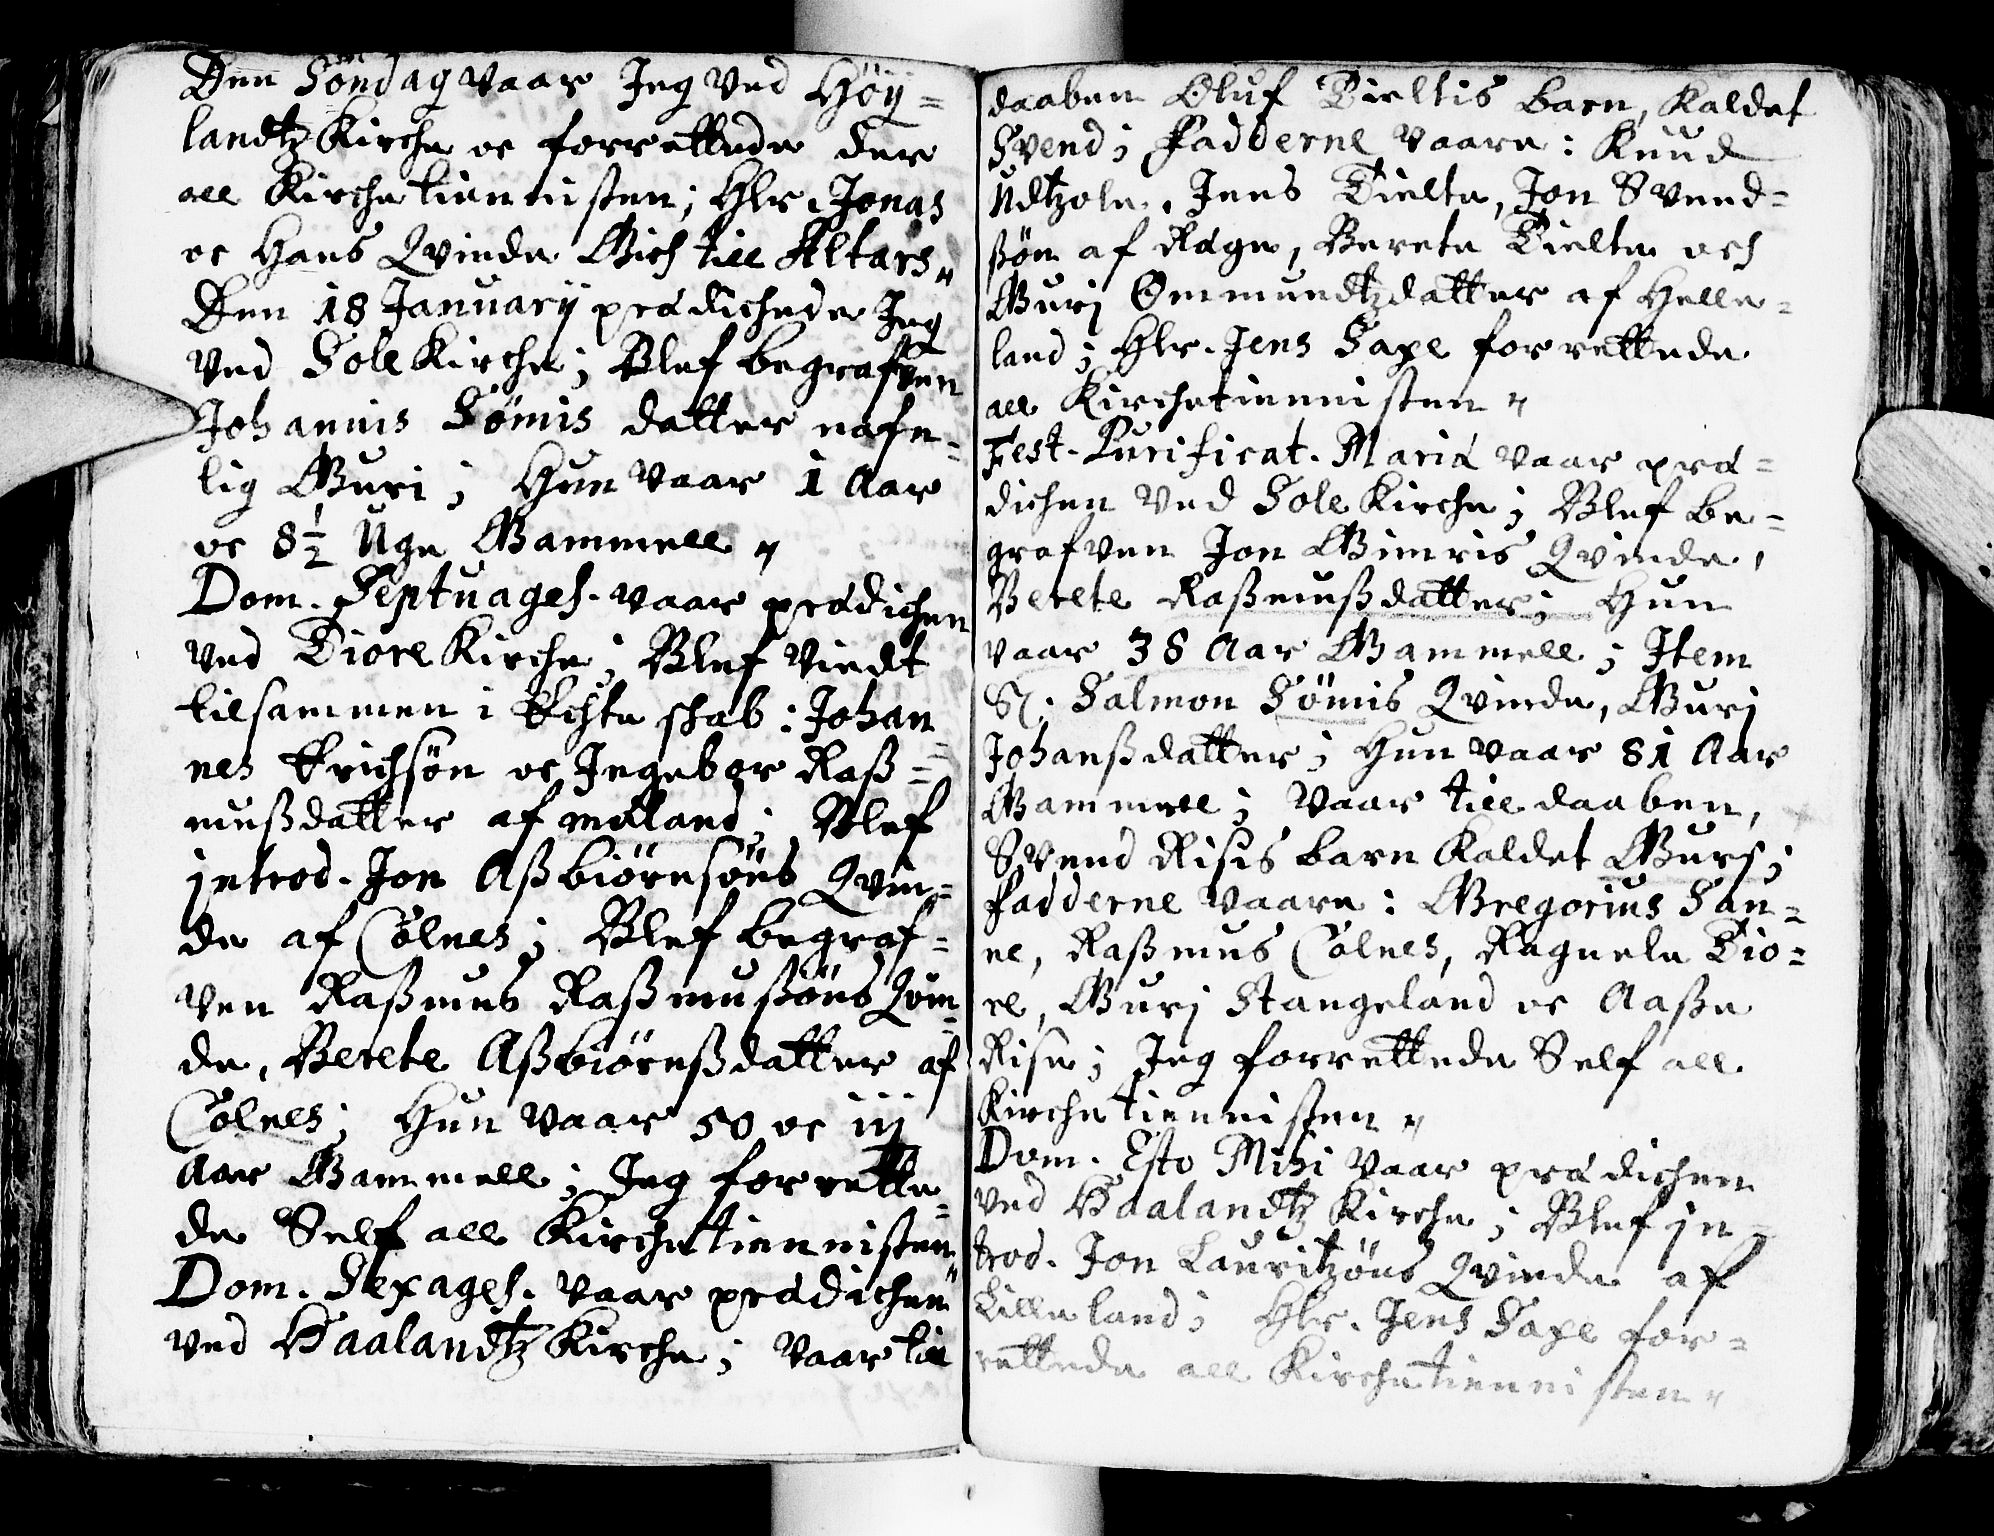 Den Söndag vaar Jeg ved Höÿ=
landtz Kirche oc forrettede der
all Kirche tiennisten; Hlr. Jonas
oc Hans Qvinde Gich till Altars"
Den 18 Januarij prædichede Jeg
ved Sole Kirche; Blef begrafven
Johannis Sömis datter nafn=
lig Guri; Hun vaar 1 Aar
oc 8½ Uge Gammell "
Dom. Septuages. vaar prædichen
ved Tiore Kirche; Blef viedt
tilsammen i Echte skab: Johan=
nes Erichsön oc Ingebor Raß=
mußdatter af mæland; Blef
jntrod. Jon Aßbiörnsöns Qvin=
de af Cölnes; Blef begraf=
ven Raßmus Raßmußöns Qvin=
de, Berete Aßbiörnßdatter af
Cölnes; Hun vaar 50 oc iij
Aar Gammell; Jeg forrette=
de Self all Kirche tiennisten"
Dom. Sexages. vaar prædichen
ved Haalandtz Kirche; vaar till
daaben Oluf Tieltis barn, kaldet
Svend; Fadderne vaare: Knud
Udtzole, Jens Tielte, Jon Svend=
ßön afRæge, Berete Tielte och
Gurj Ommundtzdatter af Helle=
land; Hlr. Jens Saxe forrettede
all Kirchetiennisten "
Fest. Purificat. Mariæ vaar præ=
dichen ved Sole Kirche; Blef be=
grafven Jon Gimris Qvinde,
Berete Raßmußdatter; Hun
vaar 38 Aar Gammell; Item
Sl. Salmon Sömis Qvinde, Gurj
Johanßdatter; Hun vaar 81 Aar
Gammell; vaar till daaben,
Svend Risis barn kaldet Gurj;
Fadderne vaare: Gregorius Sau=
ne, Raßmus Cölnes, Ragnele Tio=
re, Gurj Stangeland oc Aaße
Rise; Jeg forrettede Self all
Kirche tiennisten "
Dom. Esto Mihi vaar prædichen
ved Haalandtz Kirche; Blef jn=
trod. Jon Lauritzöns Qvinde af
Lilleland; Hlr. Jens Saxe for=
rettede all Kirche tiennisten "